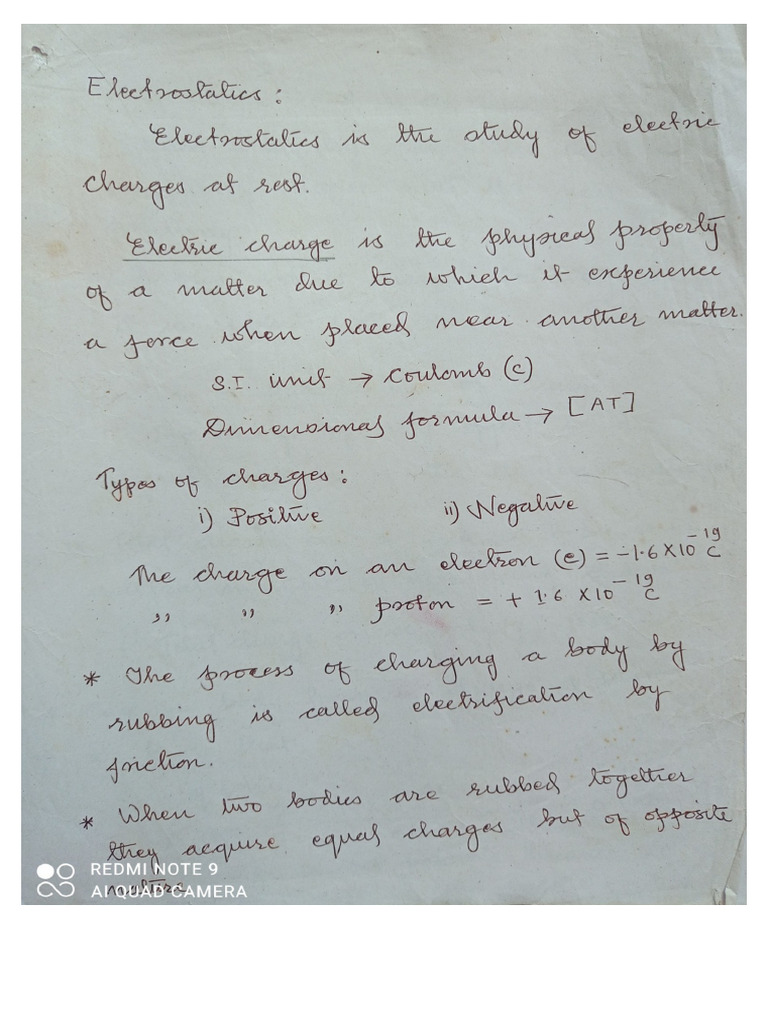 Electrostatics :
Electrostatics is the study of electric
charges at rest.
Electric charge is the physical property
of a matter due to which it experience
a force when placed near another matter.
S.I. unit → Coulomb (C)
Dimensional formula → [AT]
Types of charges :
i) Positive ii) Negative
The charge on an electron (e) = -1.6 X10⁻¹⁹ C
,, ,, ,, proton = + 1.6 X10⁻¹⁹ C
* The process of charging a body by
rubbing is called electrification by
friction.
* When two bodies are rubbed together
they acquire equal charges but of opposite
REDMI NOTE 9
AI QUAD CAMERA